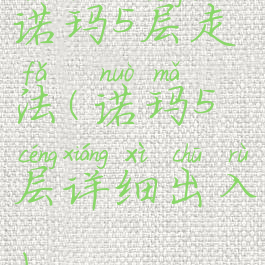 诺玛5层走
fǎ nuò mǎ
法(诺玛5
céng xiáng xì chū rù
层详细出入
)